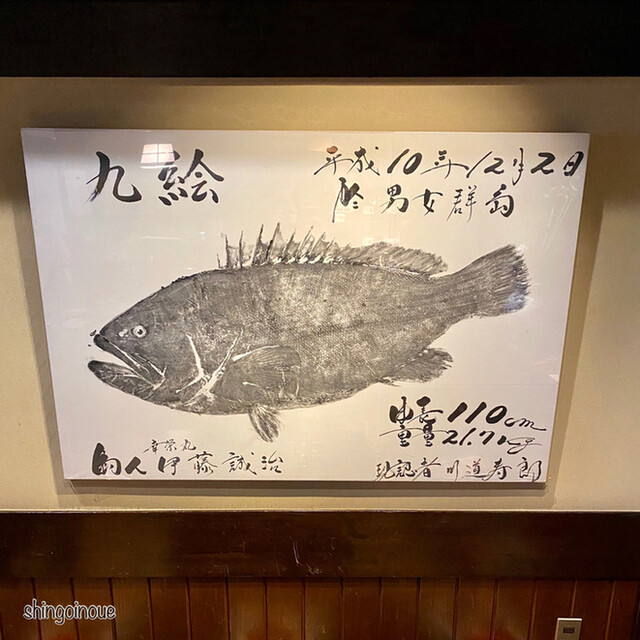 九絵
平成10年12月2日
於男女群島
身長110cm
重量21.71kg
幸栄丸
釣人 伊藤誠治
現認者 川道寿郎
shingoinoue